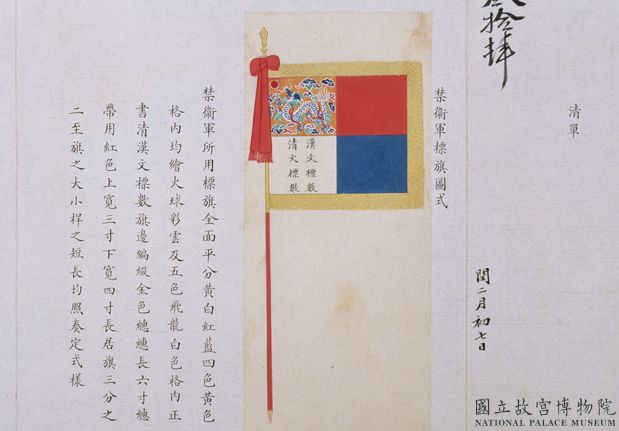 清單
拾肆
閏二月初七日
禁衛軍標旗圖式
漢文標數
清文標數
禁衛軍所用標旗全面平分黃白紅藍四色黃色
格內均繪火球彩雲及五色飛龍白色格內正
書清漢文標數旗邊編綴金色繐繐長六寸繐
帶用紅色上寬三寸下寬四寸長居旗三分之
二至旗之大小桿之短長均照奏定式樣
國立故宮博物院
NATIONAL PALACE MUSEUM